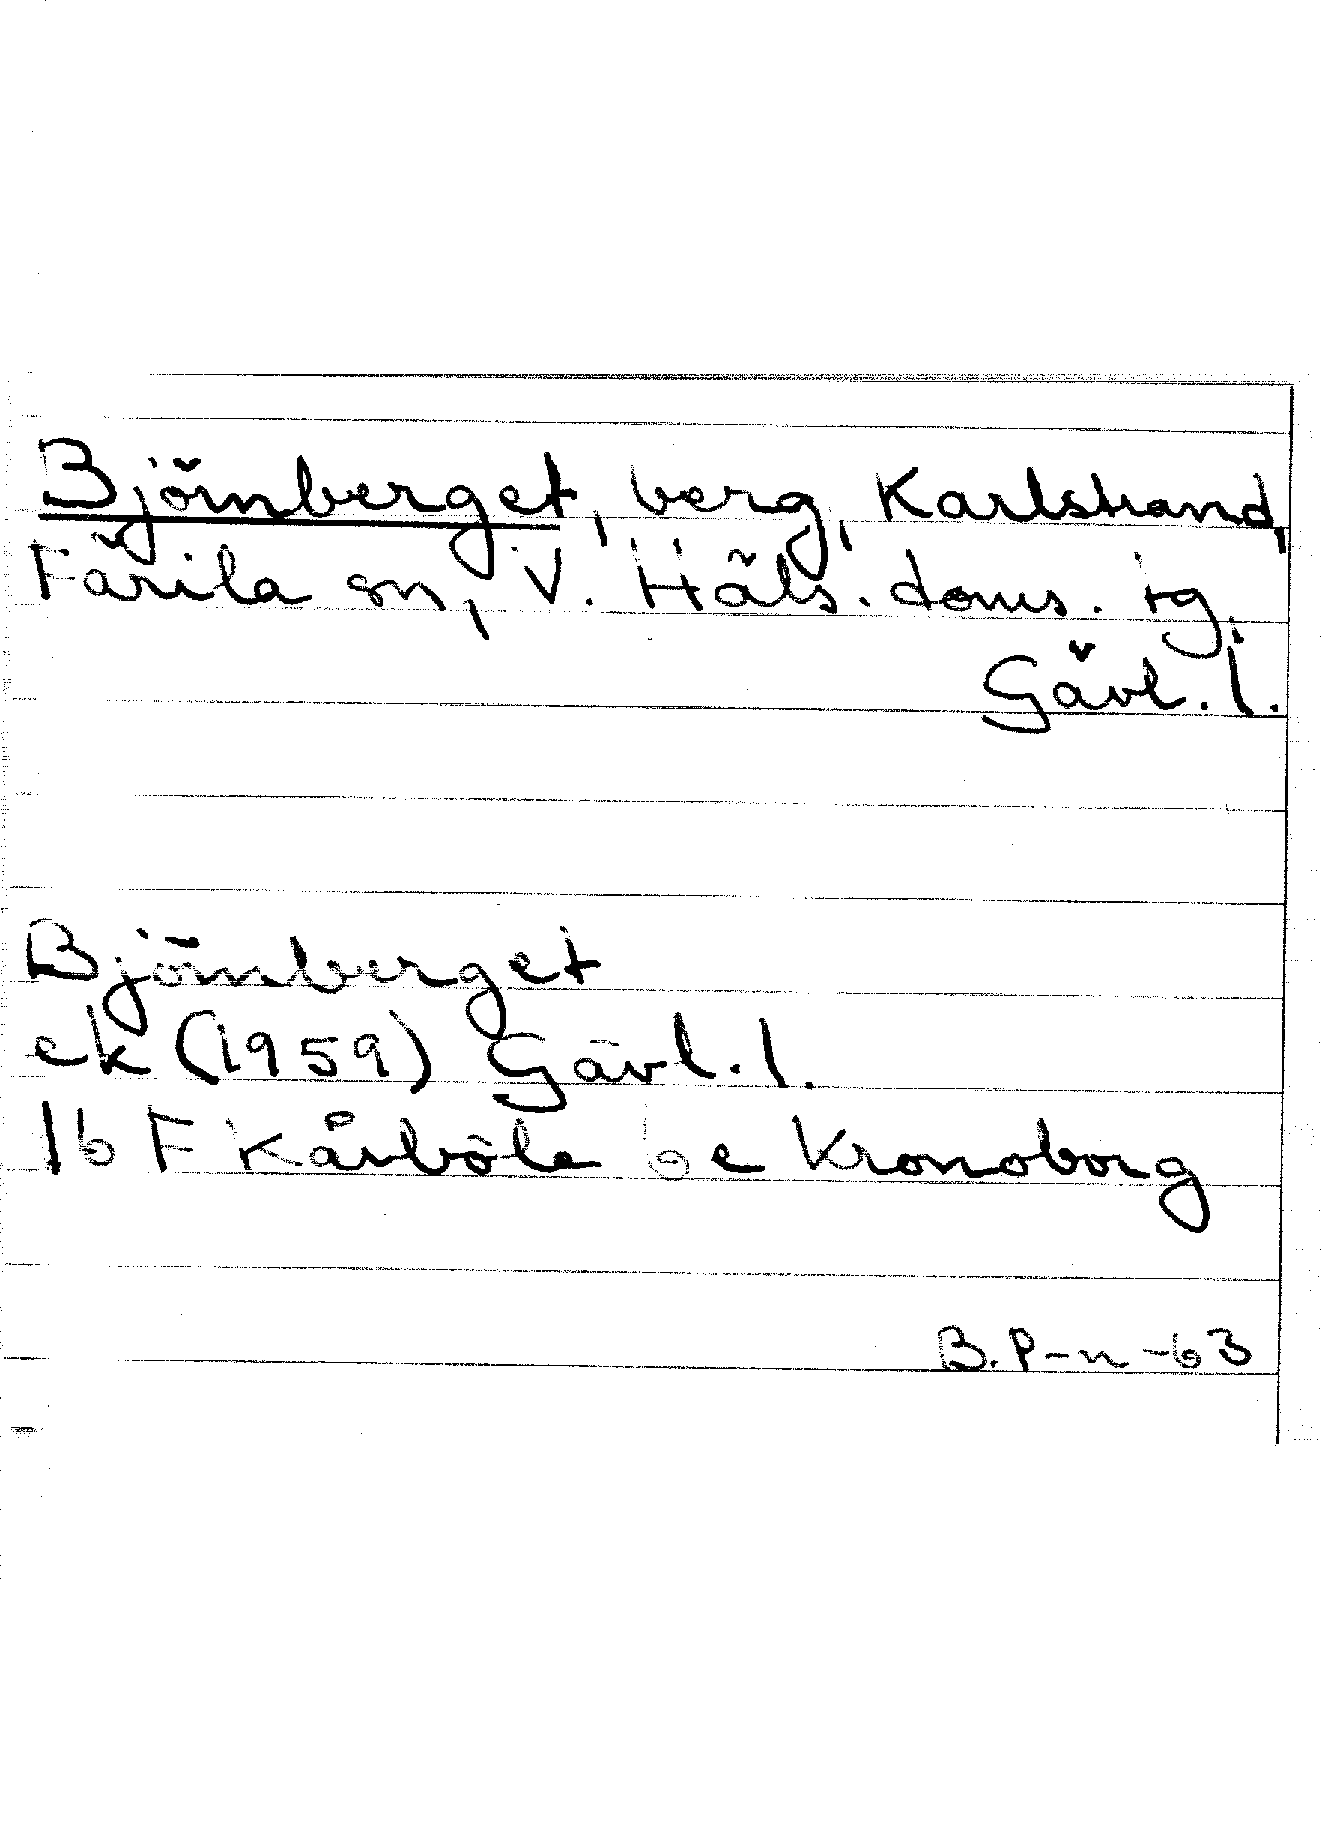 Björnberget, berg, Karlstrand,
Färila sn, V. Häls. doms. tg,
Gävl. l.
Björnberget
ek (1959) Gävl. l.
16 F Kårböle 6 e Kronoborg
B. P-n -63